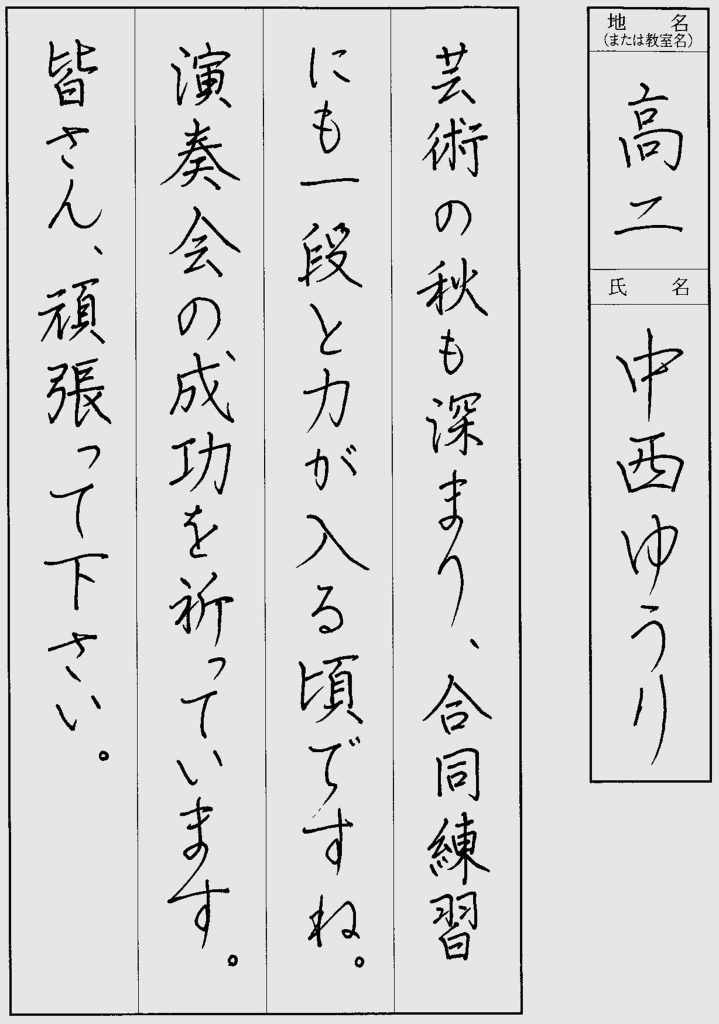 地名
（または教室名）
高二
氏名
中西ゆうり
芸術の秋も深まり、合同練習
にも一段と力が入る頃ですね。
演奏会の成功を祈っています。
皆さん、頑張って下さい。